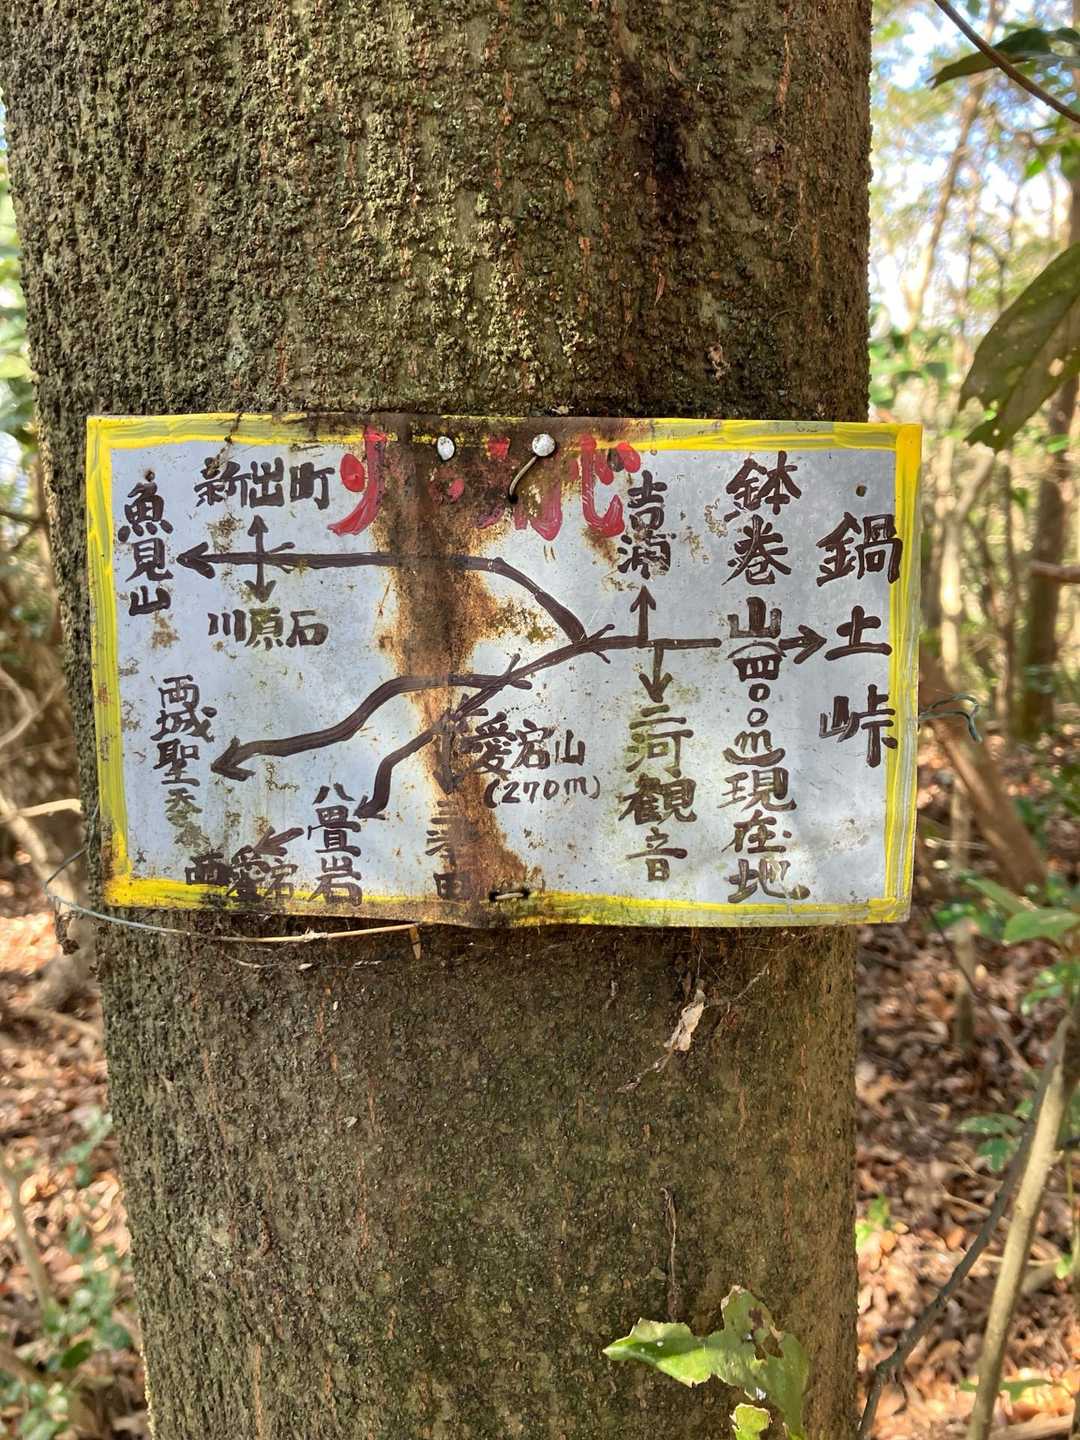 鍋土峠
鉢巻山(四〇〇m)現在地
吉浦
二河観音
愛宕山
(270m)
八畳岩
西愛宕
新出町
川原石
魚見山
両城聖